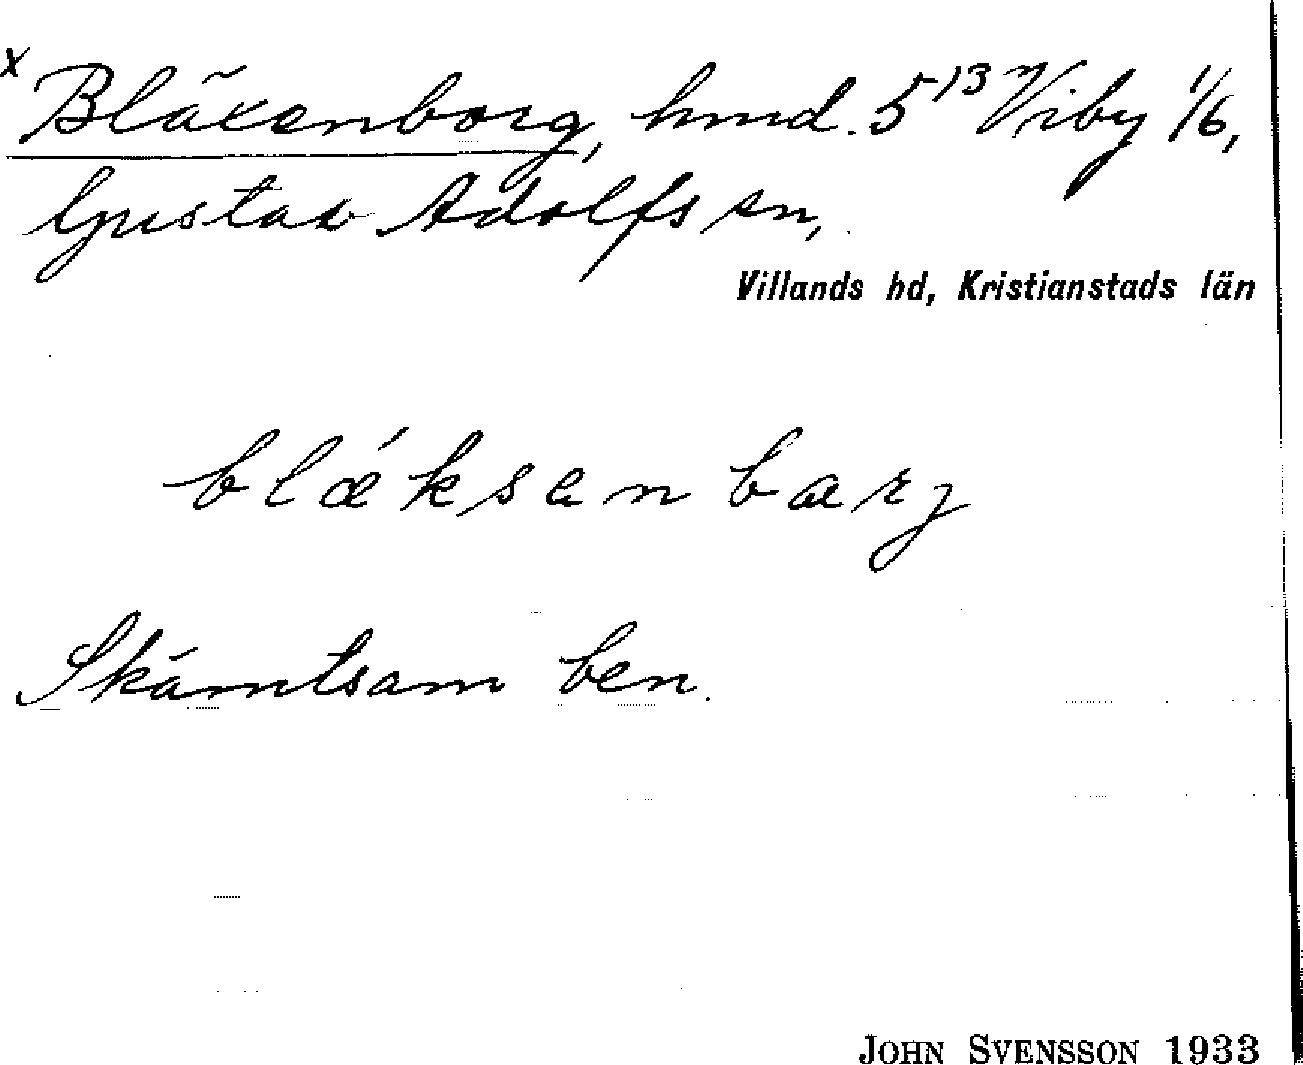 x Bläxenborg, hmd. 5¹³ Viby 1/6,
Gustav Adolfs sn,
Villands hd, Kristianstads län
blǽksenbarj
Skämtsam ben.
JOHN SVENSSON 1933